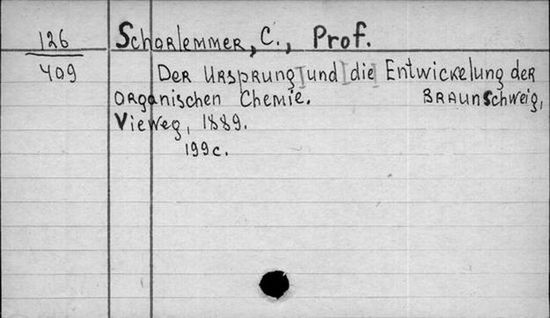 126 Schorlemmer, C., Prof.
409 Der Ursprung [und [die] Entwickelung der
organischen Chemie. Braunschweig,
Vieweg, 1889.
199c.